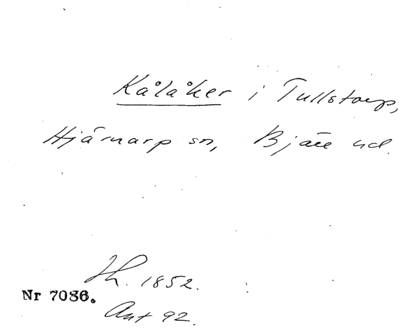 Kålåker i Tullstorp,
Hjärnarp sn, Bjäre hd.
Jh. 1852.
Nr 7086.
Ant 92.